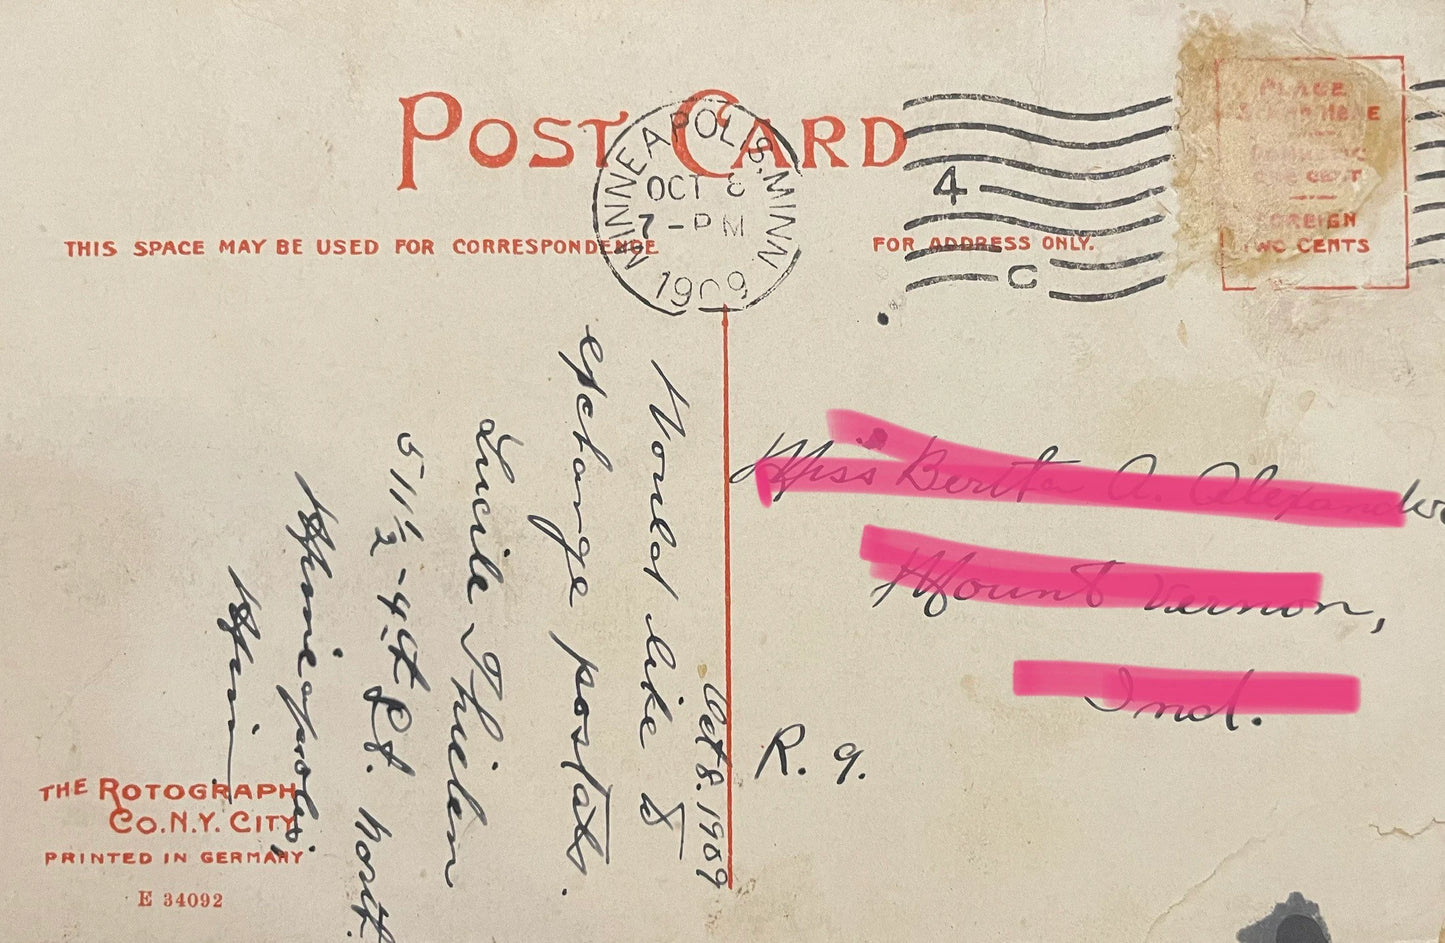 POST CARD
MINNEAPOLIS, MINN.
OCT 8
7-PM
1909
4
C
THIS SPACE MAY BE USED FOR CORRESPONDENCE
FOR ADDRESS ONLY.
PLACE
STAMP HERE
DOMESTIC
ONE CENT
FOREIGN
TWO CENTS
Oct 8. 1909
Would like to
exchange postals.
Lucile Thielen
511½ - 4th St. North.
Minneapolis,
Minn
Miss Bertha A. Alexander
Mount Vernon,
Ind.
R. 9.
THE ROTOGRAPH
CO. N.Y. CITY
PRINTED IN GERMANY
E 34092